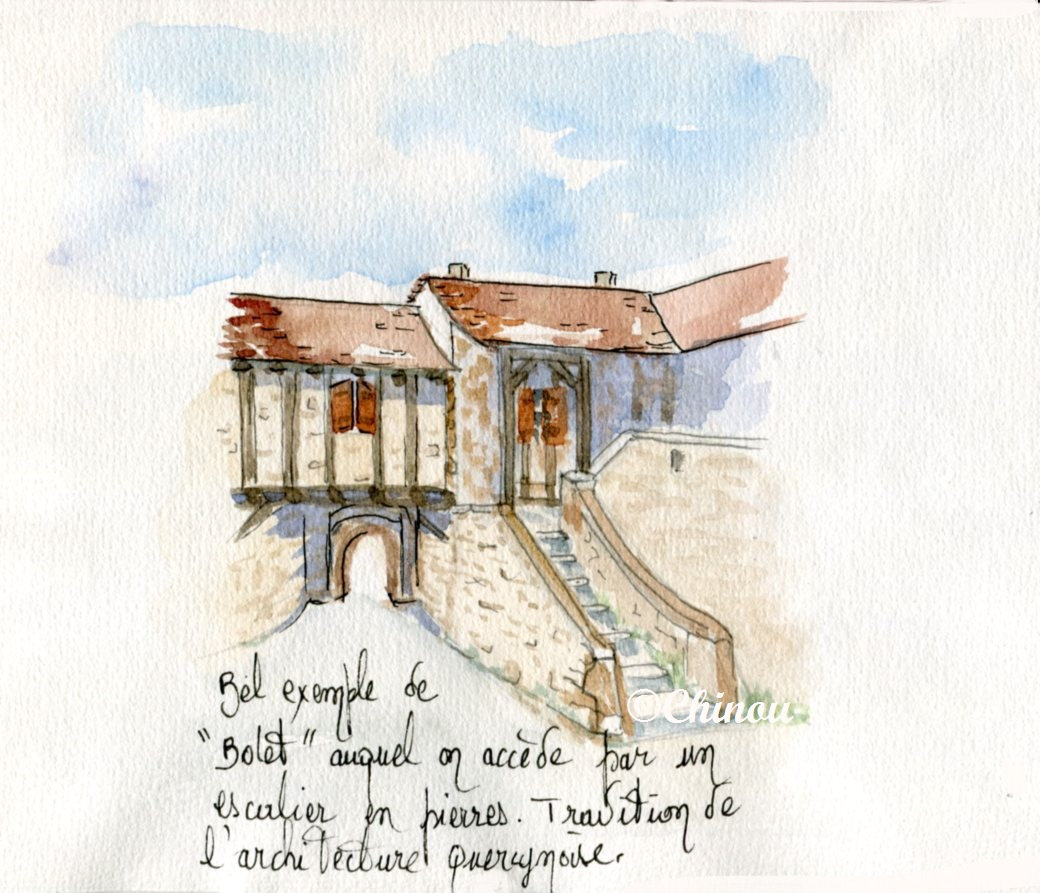 ©Chinou
Bel exemple de
"Bolet" auquel on accède par un
escalier en pierres. Tradition de
l'architecture quercynoise.